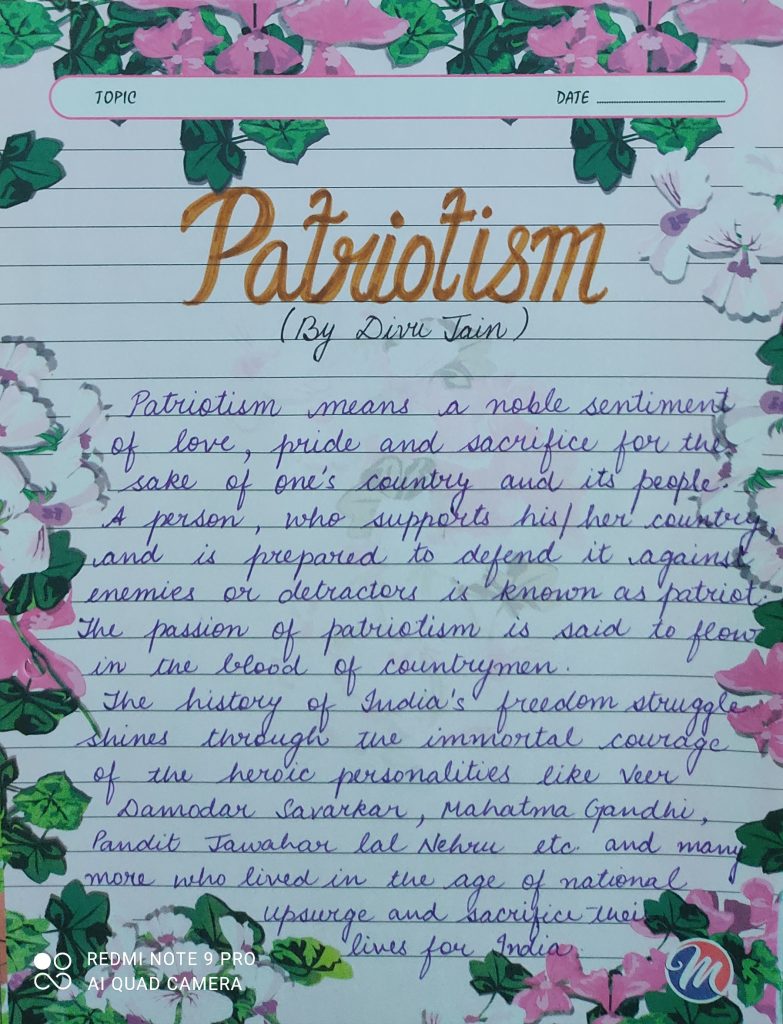 TOPIC
DATE
Patriotism
(By Divu Jain)
Patriotism means a noble sentiment
of love, pride and sacrifice for the
sake of one's country and its people.
A person, who supports his/her country,
and is prepared to defend it against
enemies or detractors is known as patriot.
The passion of patriotism is said to flow
in the blood of countrymen.
The history of India's freedom struggle
shines through the immortal courage
of the heroic personalities like Veer
Damodar Savarkar, Mahatma Gandhi,
Pandit Jawahar lal Nehru etc. and many
more who lived in the age of national
upsurge and sacrifice their
lives for India
M
REDMI NOTE 9 PRO
AI QUAD CAMERA